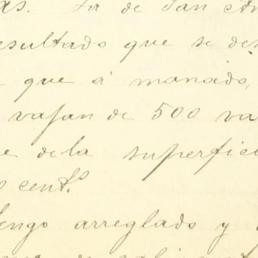 as. Fr de San An
esultado que se des
e que á manado,
vajan de 500 va
e de la superfici
o cent.s
tengo arreglado y